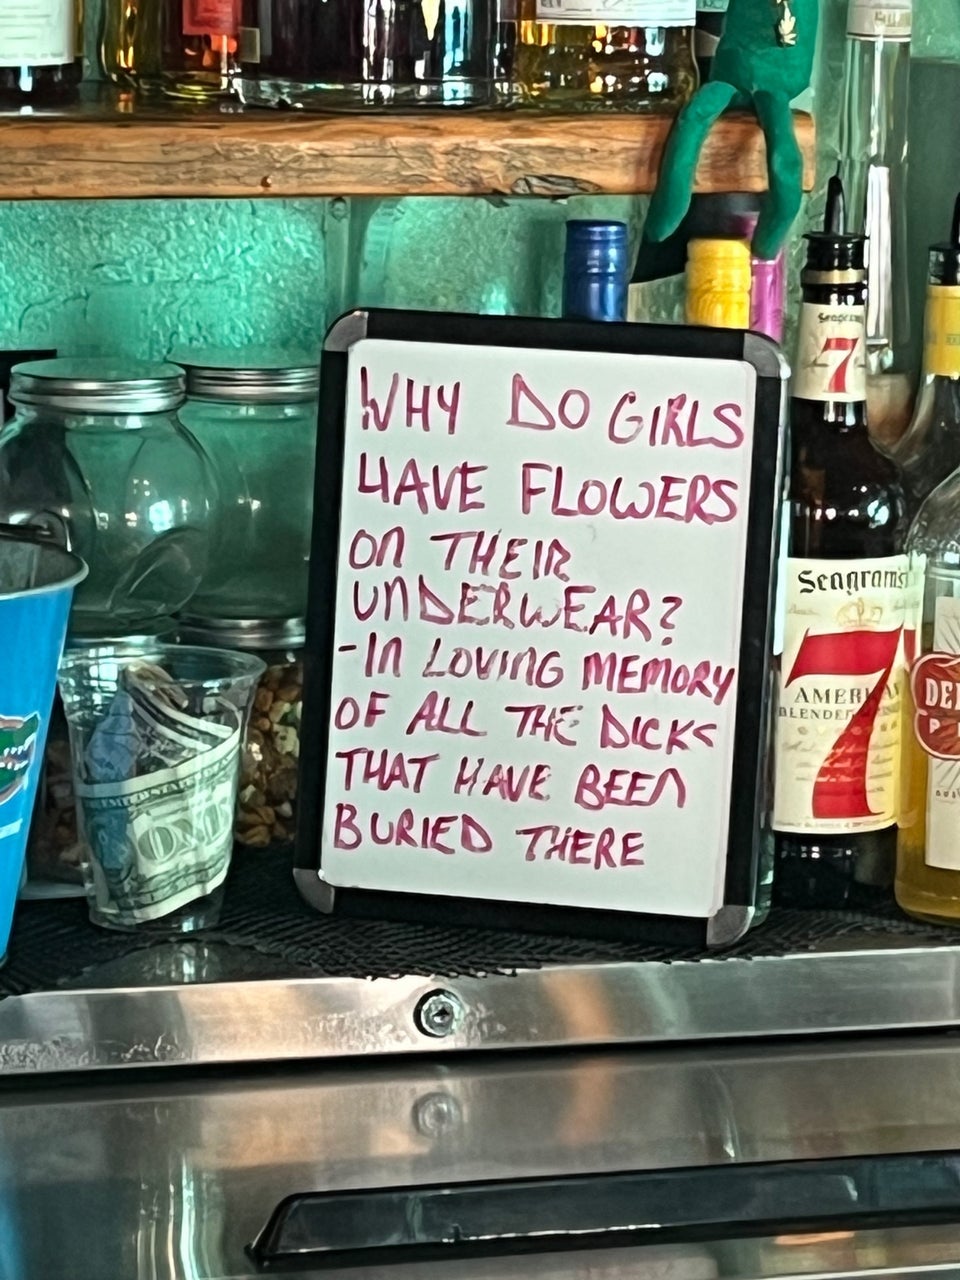 WHY DO GIRLS
HAVE FLOWERS
ON THEIR
UNDERWEAR?
-IN LOVING MEMORY
OF ALL THE DICKS
THAT HAVE BEEN
BURIED THERE
Seagram's
7
Seagram's
7
AMERICAN
BLENDED
DE
P
ONE